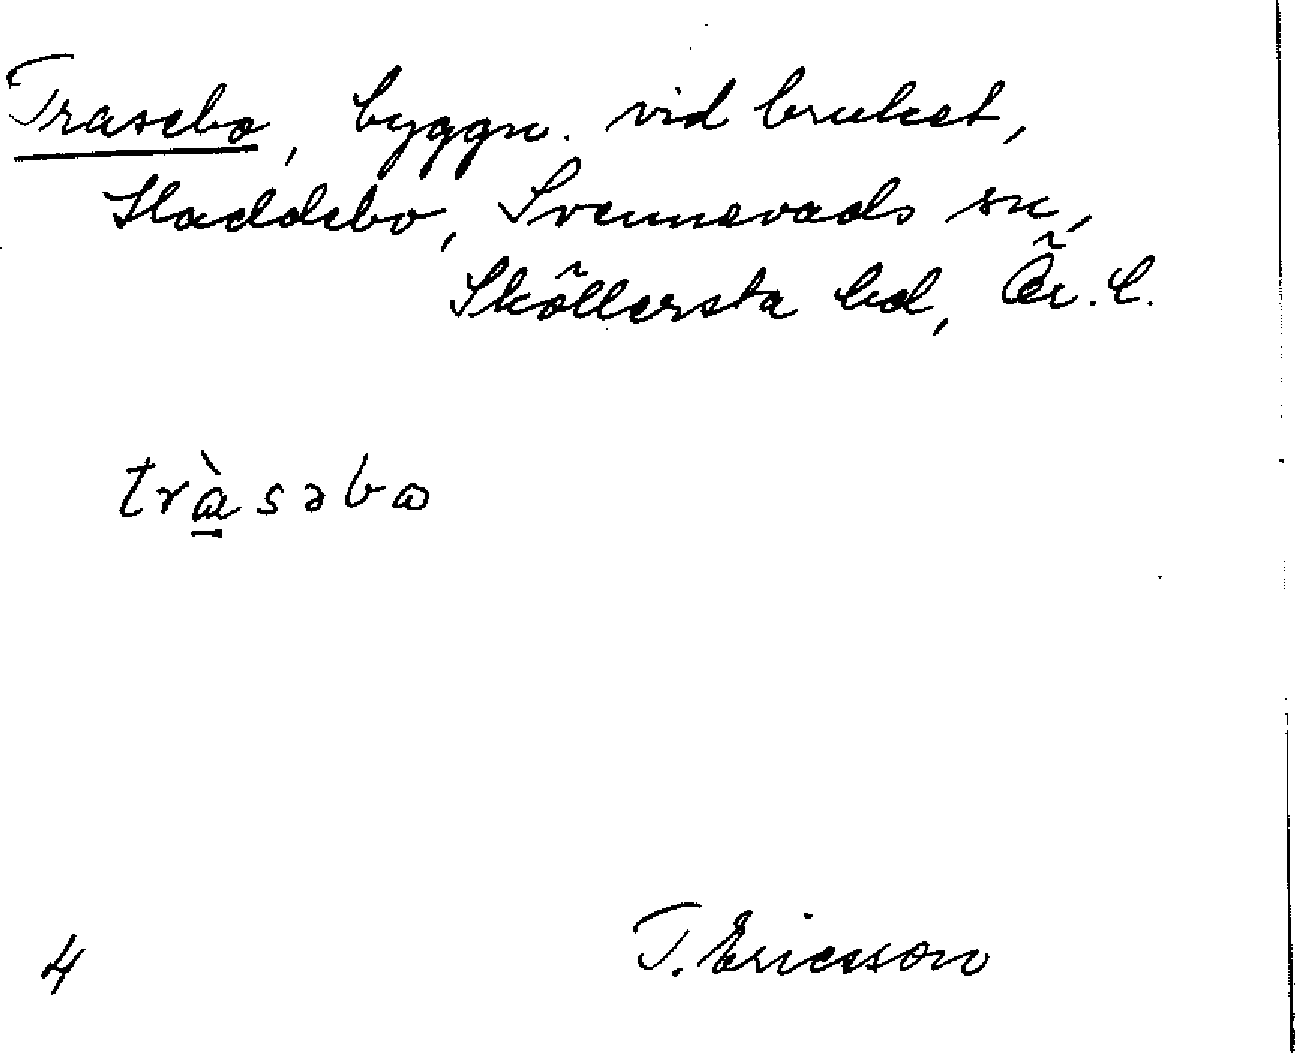 Trasebo, byggn. vid bruket,
Haddebo, Svennevads sn,
Sköllersta hd, Ör. l.
tràsəbω
4
T. Ericsson